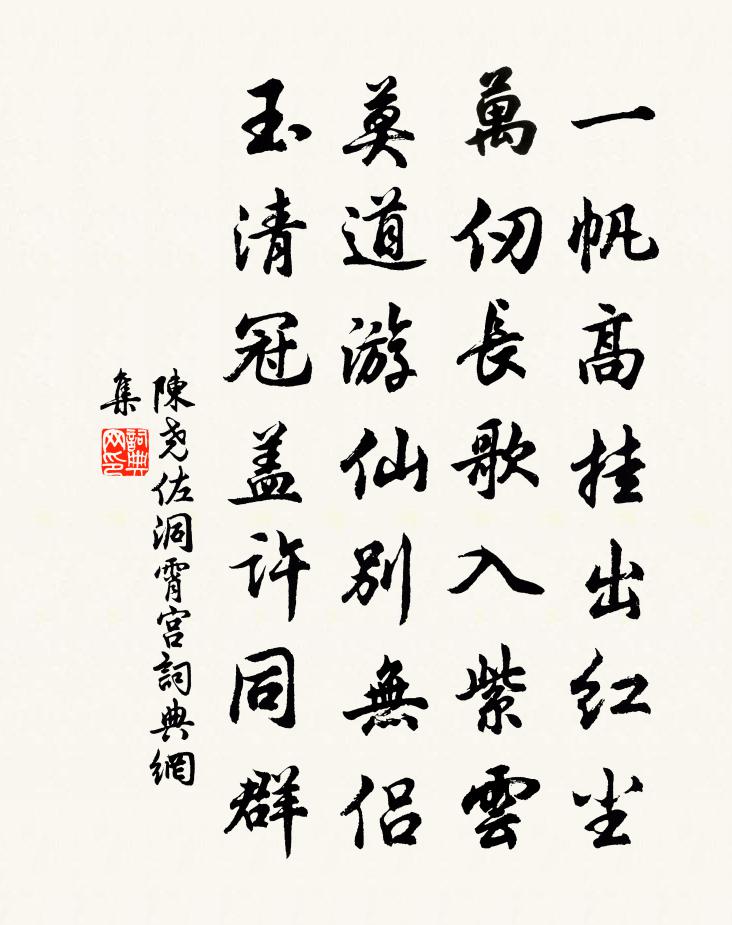 一帆高挂出红尘
萬仞長歌入紫雲
莫道游仙别無侣
玉清冠盖許同群
陳尧佐洞霄宫詞典網
集
詞典网印